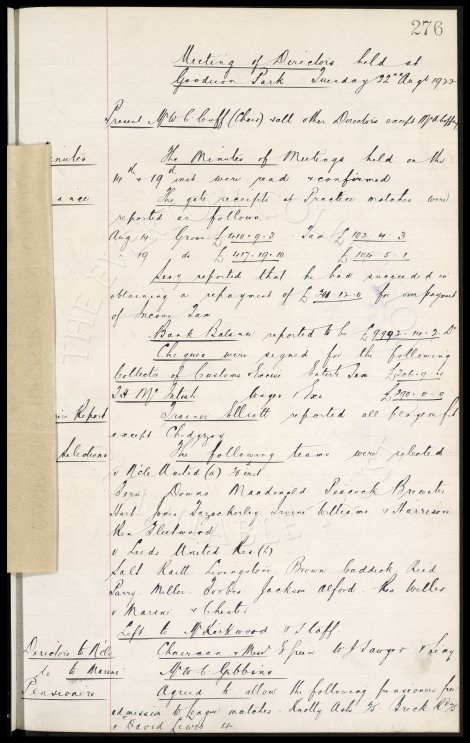 276
Meeting of Directors held at
Goodison Park Tuesday 22nd Augt 1922
Present Mr W. C. Cuff (Chair) & all other Directors except Mr A. Coffey
The Minutes of Meetings held on the
14th & 19th inst were read & confirmed
The gate receipts at Practice matches were
reported as follows:-
Aug 14 Gross £410.9.3 Tax £103.4.3
19 do £417.19.10 £104.5.1
Secy reported that he had succeeded in
obtaining a repayment of £ .12.0 for overpayment
of Income Tax
Bank Balance reported to be £9992. .2 Dr
Cheques were signed for the following
Collector of Customs & Excise Entert Tax £206.9.
T. H. McIntosh Wages & Exs £290.0.0
Report
Trainer Elliott reported all players fit
except Chedgzoy
Selections
The following teams were selected
v N'cle United (a) inst
Fern Downs Macdonald Peacock Brewster
Hart Jones Fazackerley Irvine Williams & Harrison
Res Fleetwood
v Leeds United Res (h)
Salt Raitt Livingstone Brown Caddick Reid
Parry Miller Forbes Jackson Alford. Res Weller
v Marine & Chester
Left to Mr Kirkwood & Staff.
Directors to N'cle Chairman & Messrs Green W. J. Sawyer & Secy
do to Marine Mr W. C. Gibbins
Pensioners Agreed to allow the following pensioners free
admission to League matches. Knotty Ash Brock
& David Lewis 4